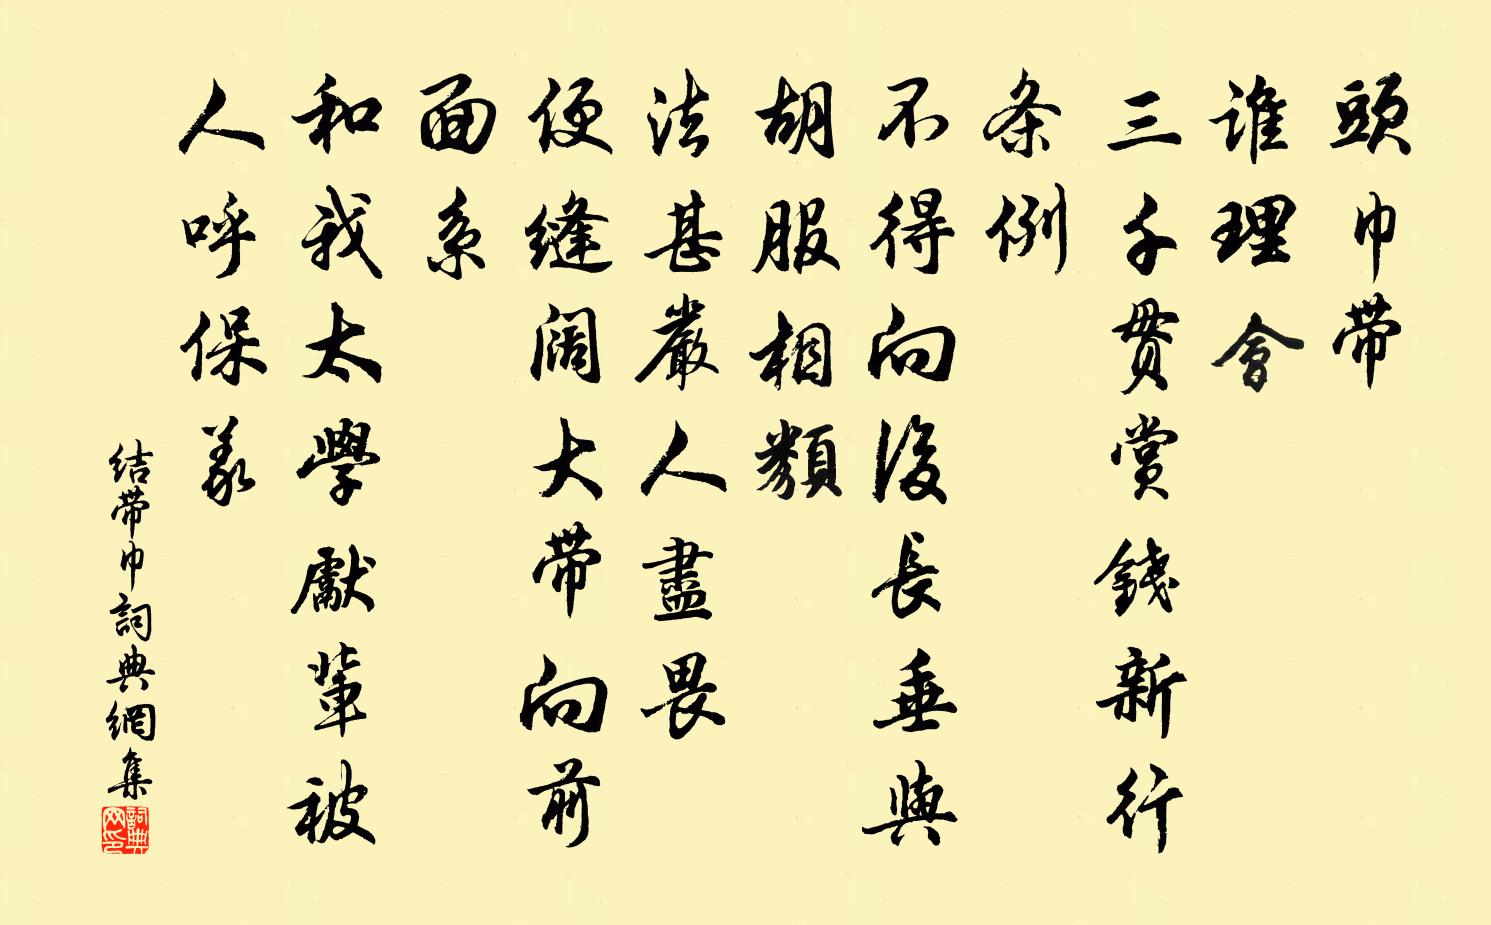 頭巾帶
誰理會
三千貫賞錢新行
条例
不得向後長垂與
胡服相類
法甚嚴人盡畏
便縫闊大帶向前
面系
和我太學獻輩被
人呼保義
结帶巾詞典網集
詞典网印